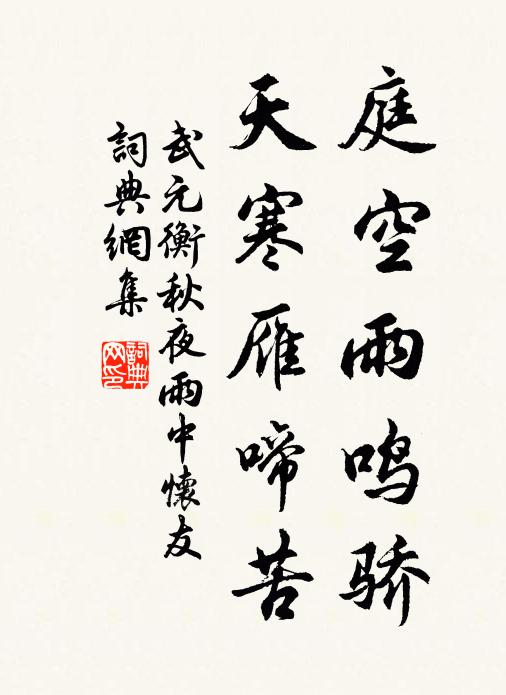 庭空雨鸣骄
天寒雁啼苦
武元衡秋夜雨中懷友
詞典網集
詞典網印